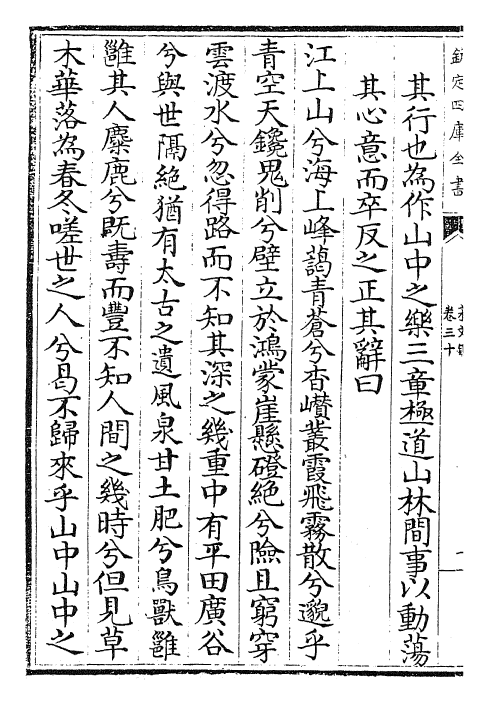 欽定四庫全書
卷三十
其行也為作山中之樂三章極道山林間事以動蕩
其心意而卒反之正其辭曰
江上山兮海上峰藹青蒼兮杳巑叢霞飛霧散兮邈乎
青空天鑱鬼削兮壁立於鴻蒙崖懸磴絶兮險且窮穿
雲渡水兮忽得路而不知其深之幾重中有平田廣谷
兮與世隔絶猶有太古之遺風泉甘土肥兮鳥獸雝
雝其人麋鹿兮既壽而豐不知人間之幾時兮但見草
木華落為春冬嗟世之人兮曷不歸來乎山中山中之